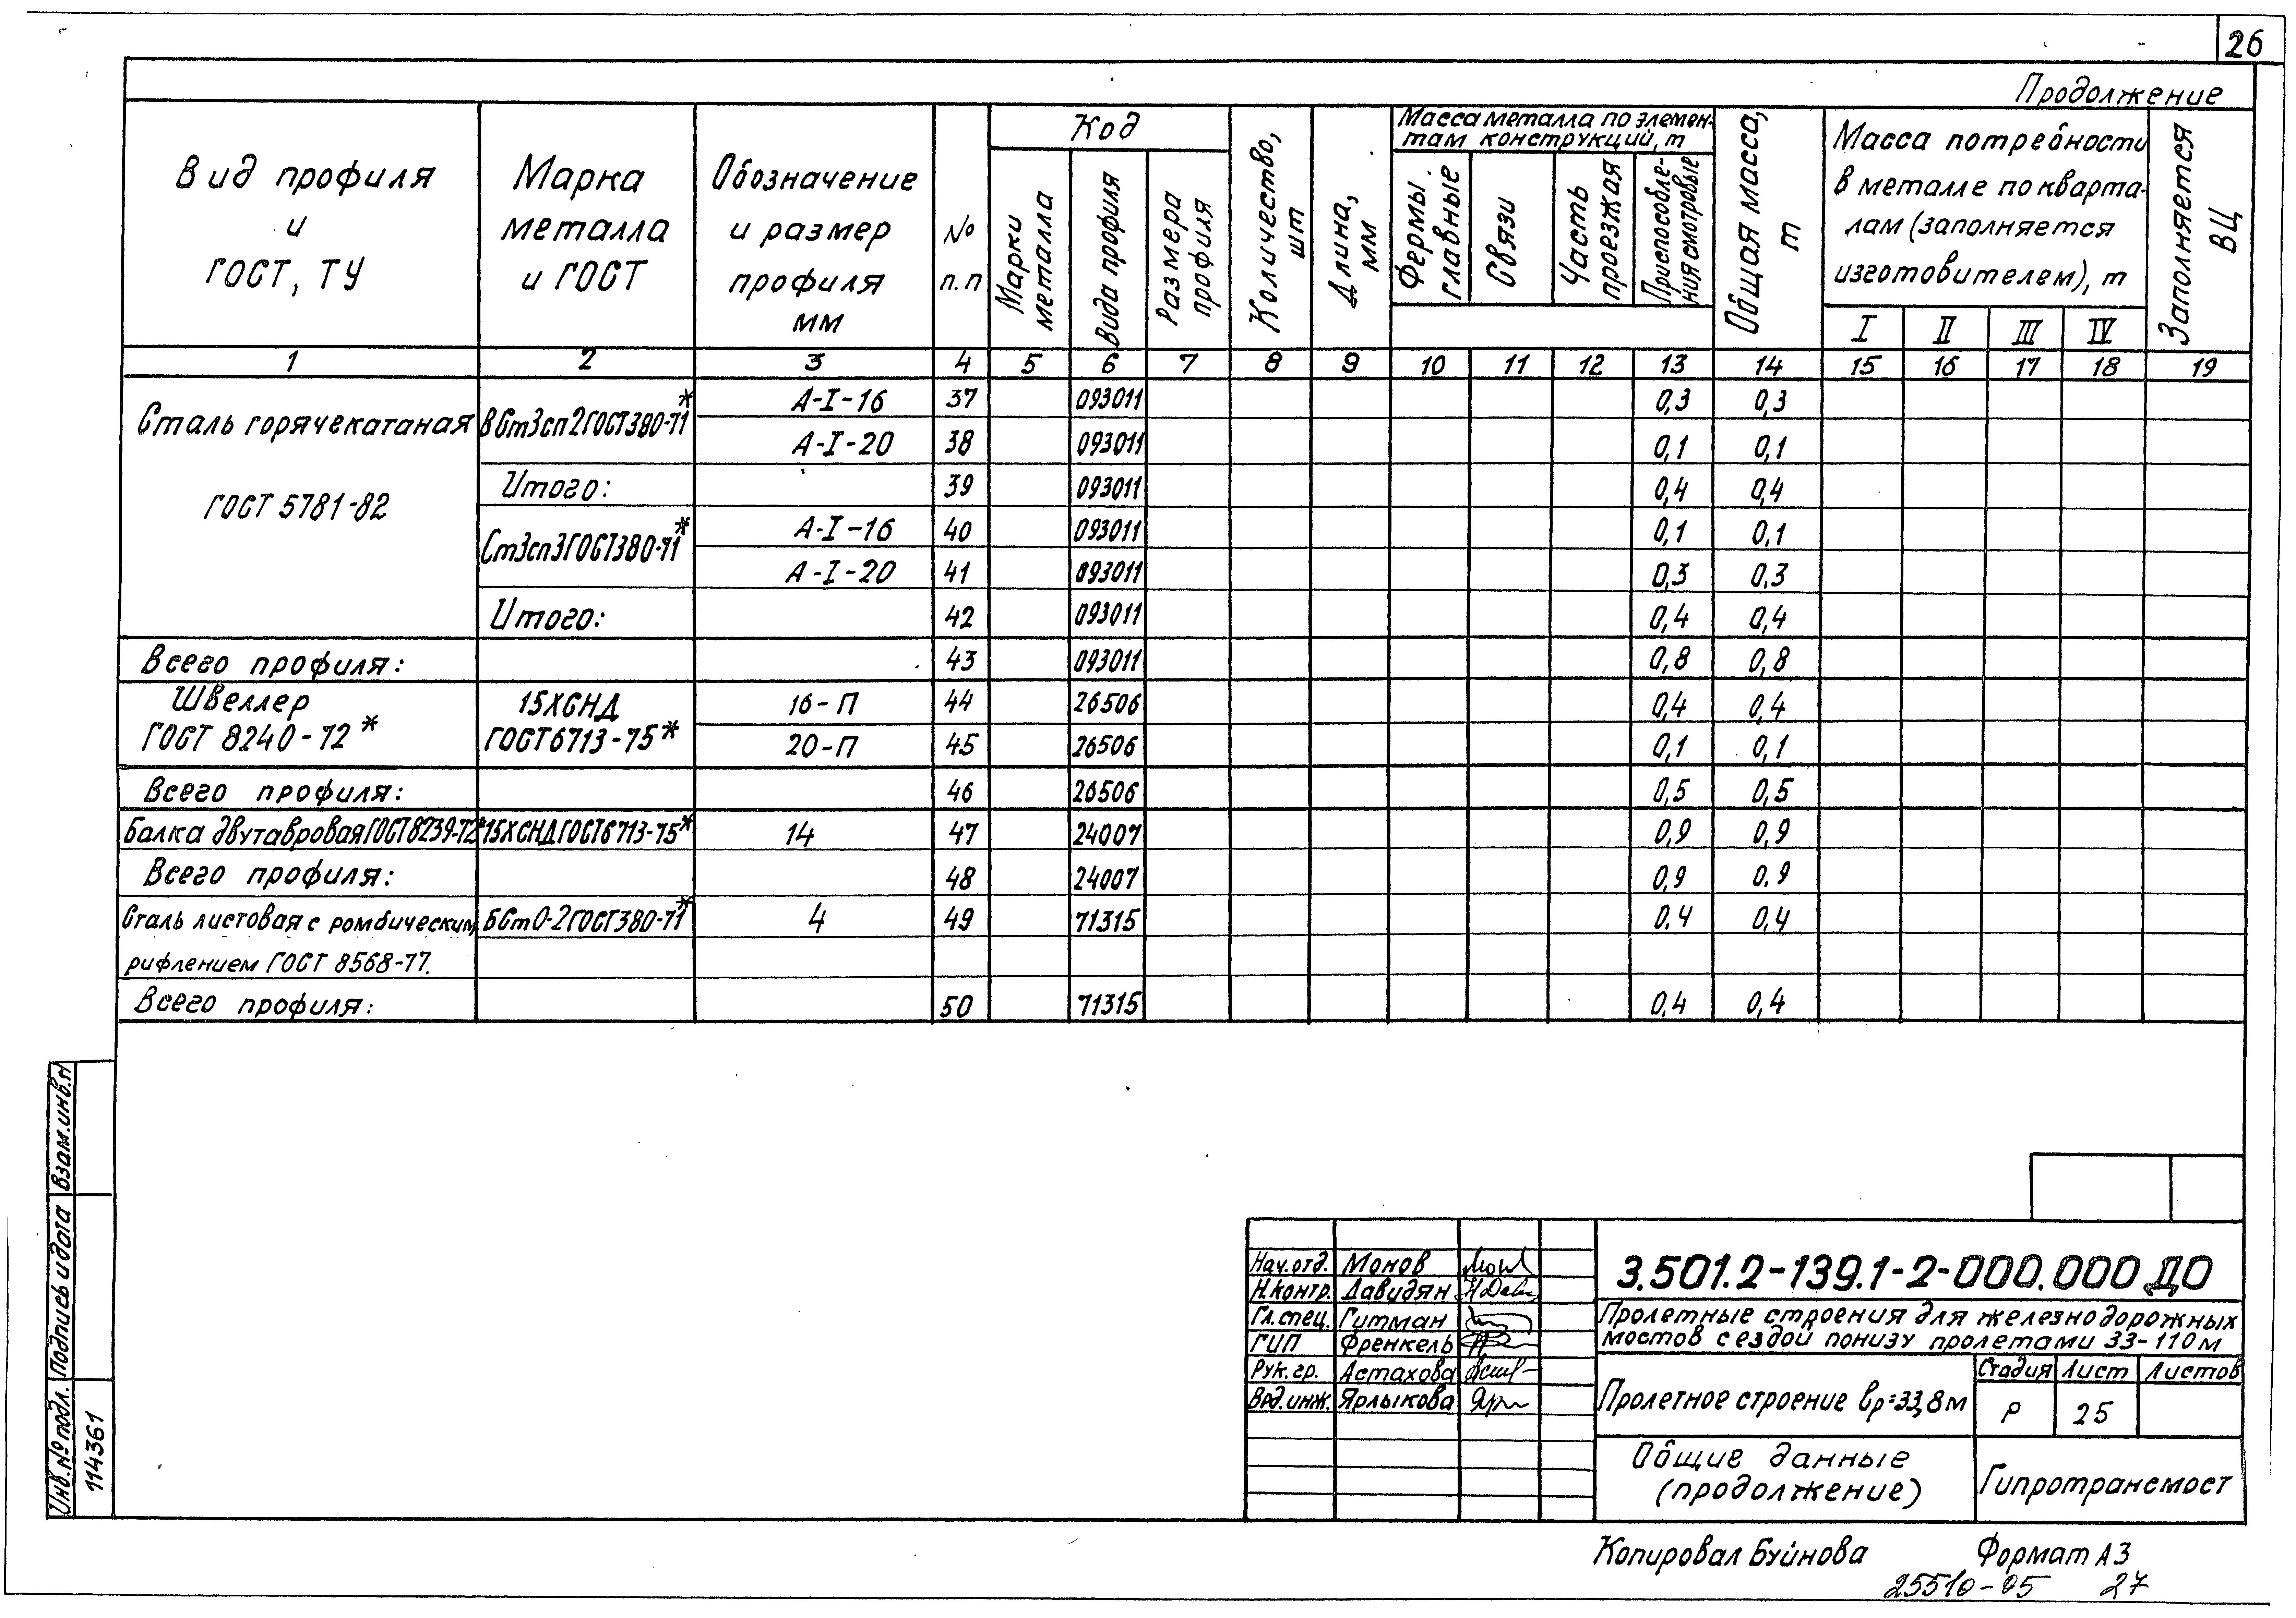 26
Продолжение
Вид профиля и ГОСТ, ТУ
Марка металла и ГОСТ
Обозначение и размер профиля мм
№ п.п
Код
Марки металла
Вида профиля
Размера профиля
Количество, шт
Длина, мм
Масса металла по элемен-
там конструкций, т
Фермы главные
Связи
Часть проезжая
Приспособле-
ния смотровые
Общая масса, т
Масса потребности
в металле по кварта-
лам (заполняется
изготовителем), т
I II III IV
Заполняется ВЦ
1 2 3 4 5 6 7 8 9 10 11 12 13 14 15 16 17 18 19
Сталь горячекатаная
ГОСТ 5781-82
ВСт3сп2 ГОСТ 380-71*
А-I-16 37 093011 0,3 0,3
А-I-20 38 093011 0,1 0,1
Итого: 39 093011 0,4 0,4
Ст3сп3 ГОСТ 380-71*
А-I-16 40 093011 0,1 0,1
А-I-20 41 093011 0,3 0,3
Итого: 42 093011 0,4 0,4
Всего профиля: 43 093011 0,8 0,8
Швеллер 15ХСНД 16-П 44 26506 0,4 0,4
ГОСТ 8240-72* ГОСТ 6713-75* 20-П 45 26506 0,1 0,1
Всего профиля: 46 26506 0,5 0,5
Балка двутавровая ГОСТ 8239-72* 15ХСНД ГОСТ 6713-75* 14 47 24007 0,9 0,9
Всего профиля: 48 24007 0,9 0.9
Сталь листовая с ромбическим БСт0-2 ГОСТ 380-71* 4 49 71315 0.4 0,4
рифлением ГОСТ 8568-77.
Всего профиля: 50 71315 0,4 0,4
Взам.инв.№
Подпись и дата
Инв.№ подл.
114361
Нач.отд. Монов
Н.контр. Давидян
Гл.спец. Гитман
ГИП Френкель
Рук.гр. Астахова
Вед.инж. Ярлыкова
3.501.2-139.1-2-000.000 ДО
Пролетные строения для железнодорожных
мостов с ездой понизу пролетами 33-110м
Пролетное строение ℓр=33,8м
Стадия Лист Листов
Р 25
Общие данные
(продолжение)
Гипротрансмост
Копировал Буйнова Формат А3
25510-05 27